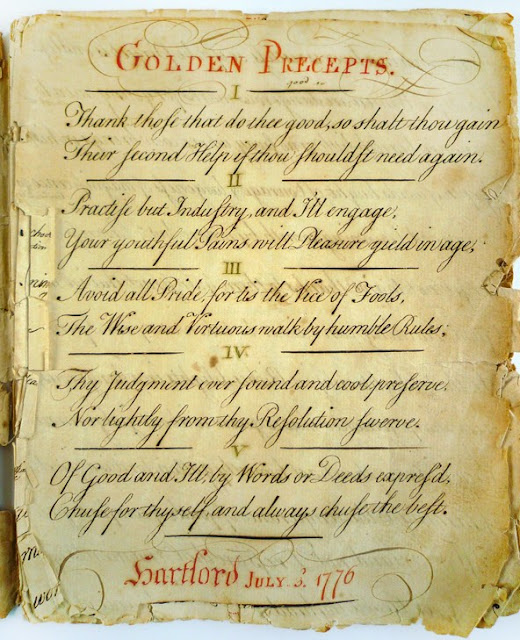 GOLDEN PRECEPTS.
I
Thank thoſe that do thee good, so shalt thou gain
Their second Help if thou ſhouldſt need again.
II
Practiſe but Induſtry, and I'll engage,
Your youthful Pains will Pleaſure yield in age;
III
Avoid all Pride, for tis the Vice of Fools,
The Wiſe and Virtuous walk by humble Rules;
IV.
Thy Judgment ever ſound and cool preſerve.
Nor lightly from thy Reſolution ſwerve.
V
Of Good and Ill, by Words or Deeds expreſd,
Chuſe for thyſelf, and always chuſe the beſt.
Hartford JULY 3. 1776